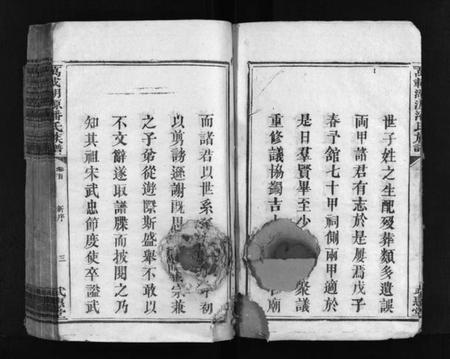 世子姓之生配歿葬類多遺誤
兩甲諸君有志於是屢焉戊子
春予館七十甲祠側兩甲適於
是日羣賢畢至少 衆議
重修議協蠲吉 廟
而諸君以世系 初
以剪謭遜謝 宗兼
之子弟從遊際斯盛舉不敢以
不文辭遂取譜牒而披閱之乃
知其祖宋武忠節度使卒諡武
萬載湖源潘氏族譜
卷首
新序
三
武惠堂